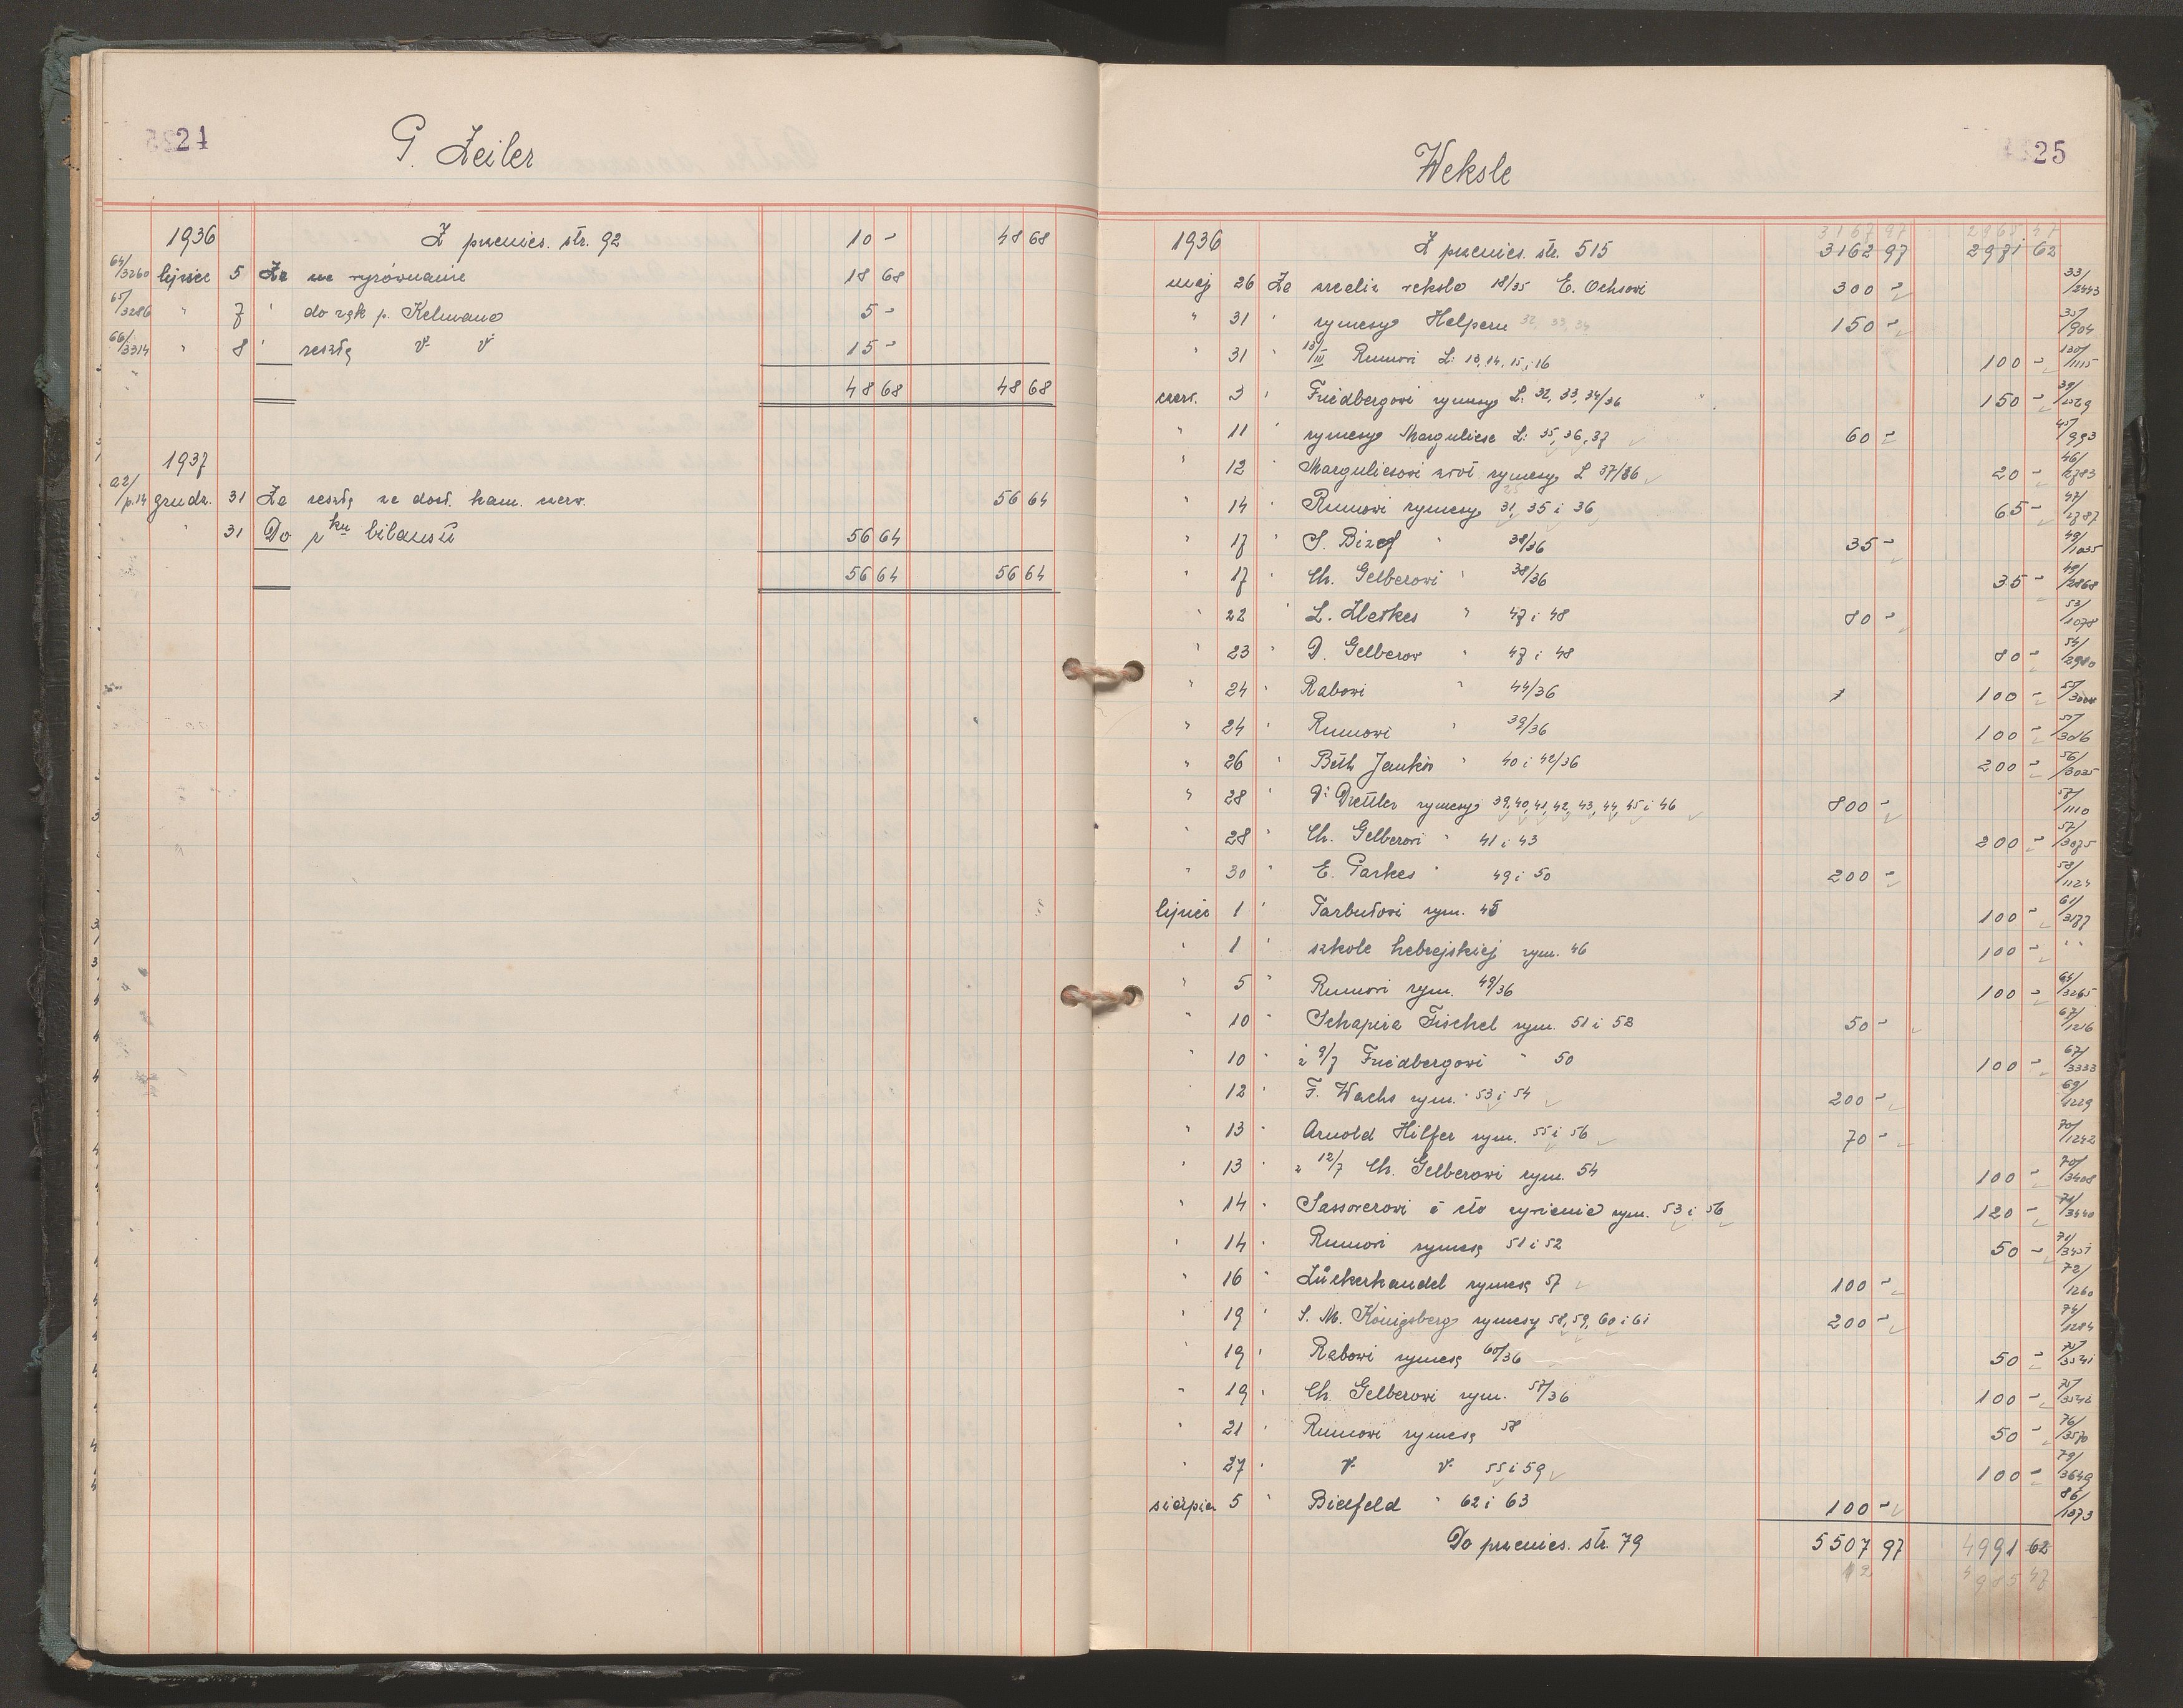 24
G. Zeiler
1936 Z przenies. str. 92 10 - 48 68
64/3260 lipiec 5 Za na wyrównanie 18 68
65/3286 " 7 " do rąk p. Kelmana 5 -
66/3314 " 8 " resztę " " 15 -
48 68 48 68
1937
a2/p.14 grudz. 31 Za resztę za dost. kam. czerw. 56 64
" 31 Do rku bilansu 56 64
56 64 56 64
25
Weksle
3167 97 2968 47
1936 Z przenies. str. 515 3162 97 2971 62
maj 26 Za weksla 18/35 E. Ochsowi 300 - 33/2443
" 31 rymesy Helpern 32, 33, 34 150 - 35/904
" 31 " 13/III Rumowi L: 13, 14, 15, i 16 100 - 130/1115
czerw. 3 " Friedbergowi rymesy L: 32, 33, 34/36 150 - 39/
" 11 " rymesy Marguliese L: 35, 36, 37 60 - 45/993
" 12 " Marguliesowi zwrot rymesy L 37/36 20 - 46/2783
" 14 " Rumowi rymesy 31, 35 i 36 65 - 47/2787
" 17 " S. Bizef " 38/36 35 - 49/1035
" 17 " Ch. Gelberowi " 38/36 35 - 49/2868
" 22 " L. Metkes " 47 i 48 80 - 53/1078
" 23 " D. Gelberow " 47 i 48 80 - 54/2980
" 24 " Rabowi " 44/36 100 - 55/
" 24 " Rumowi " 39/36 100 - 55/3016
" 26 " Beth Jankiw " 40 i 42/36 200 - 56/3035
" 28 " Dr Drettler rymesy 39, 40, 41, 42, 43, 44, 45 i 46 800 - 57/1110
" 28 " Ch. Gelberowi " 41 i 43 200 - 57/3075
" 30 " E. Parkes " 49 i 50 200 - 58/1124
lipiec 1 " Tarbutowi rym. 45 100 - 61/3177
" 1 " szkole hebrejskiej rym. 46 100 - " "
" 5 " Rumowi rym. 49/36 100 - 64/3265
" 10 " Schapira Fischel rym. 51 i 52 50 - 67/1216
" 10 " z 9/7 Friedbergowi " 50 100 - 67/3333
" 12 " F. Wachs rym. 53 i 54 200 - 69/1229
" 13 " Arnold Hilfer rym. 55 i 56 70 - 70/1242
" 13 " z 12/7 Ch. Gelberowi rym. 54 100 - 70/3408
" 14 " Sassowerowi rym. 53 i 56 120 - 71/3440
" 14 " Rumowi rymesę 51 i 52 50 - 71/3451
" 16 " Zückerhandel rymesę 57 100 - 72/1260
" 19 " S. M. Königsberg rymesy 58, 59, 60 i 61 200 - 74/1284
" 19 " Rabowi rymesę 60/36 50 - 75/3541
" 19 " Ch. Gelberowi rym. 57/36 100 - 75/3542
" 21 " Rumowi rymesę 58 50 - 76/3570
" 27 " " " 55 i 59 100 - 79/3649
sierpień 5 " Bielfeld " 62 i 63 100 - 86/1373
Do przenies. str. 79 5507 97 4991 62
12 4985 47